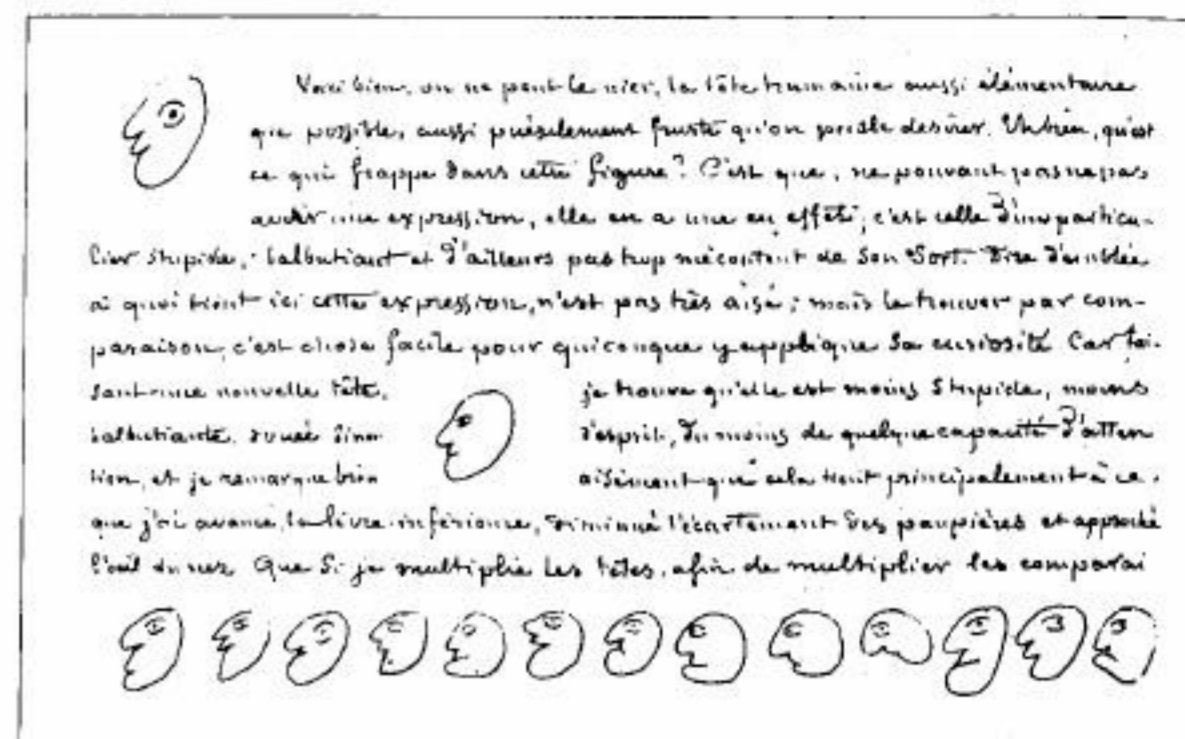 Voici bien, on ne peut le nier, la tête humaine aussi élémentaire
que possible, aussi puérilement fruste qu'on puisse le désirer. Eh bien, qu'est
ce qui frappe dans cette figure? C'est que, ne pouvant pas ne pas
avoir une expression, elle en a une en effet; c'est celle d'un particu-
lier stupide, balbutiant et d'ailleurs pas trop mécontent de son sort. Dire d'emblée
à quoi tient ici cette expression, n'est pas très aisé; mais le trouver par com-
paraison, c'est chose facile pour quiconque y applique sa curiosité. Car fai-
sant une nouvelle tête, je trouve qu'elle est moins stupide, moins
balbutiante, douée sinon d'esprit, du moins de quelque capacité d'atten
tion, et je remarque bien aisément que cela tient principalement à ce
que j'ai avancé la lèvre inférieure, diminué l'écartement des paupières et approché
l'œil du nez. Que si je multiplie les têtes, afin de multiplier les comparai